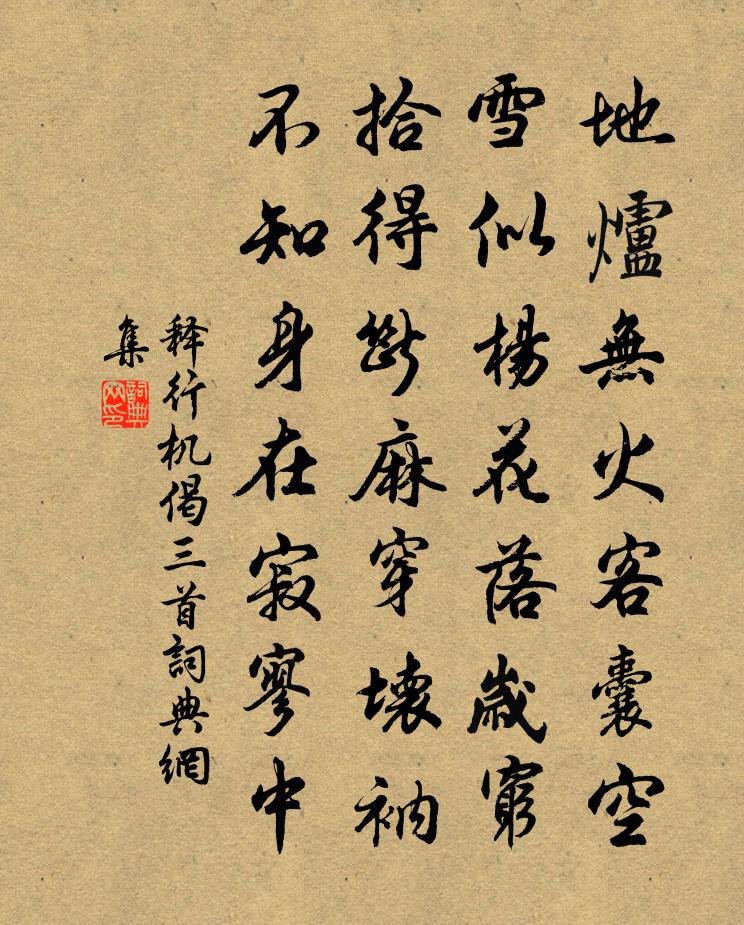 地爐無火客囊空
雪似楊花落歲窮
拾得斷麻穿壞衲
不知身在寂寥中
释行机偈三首詞典網
集
詞典網印